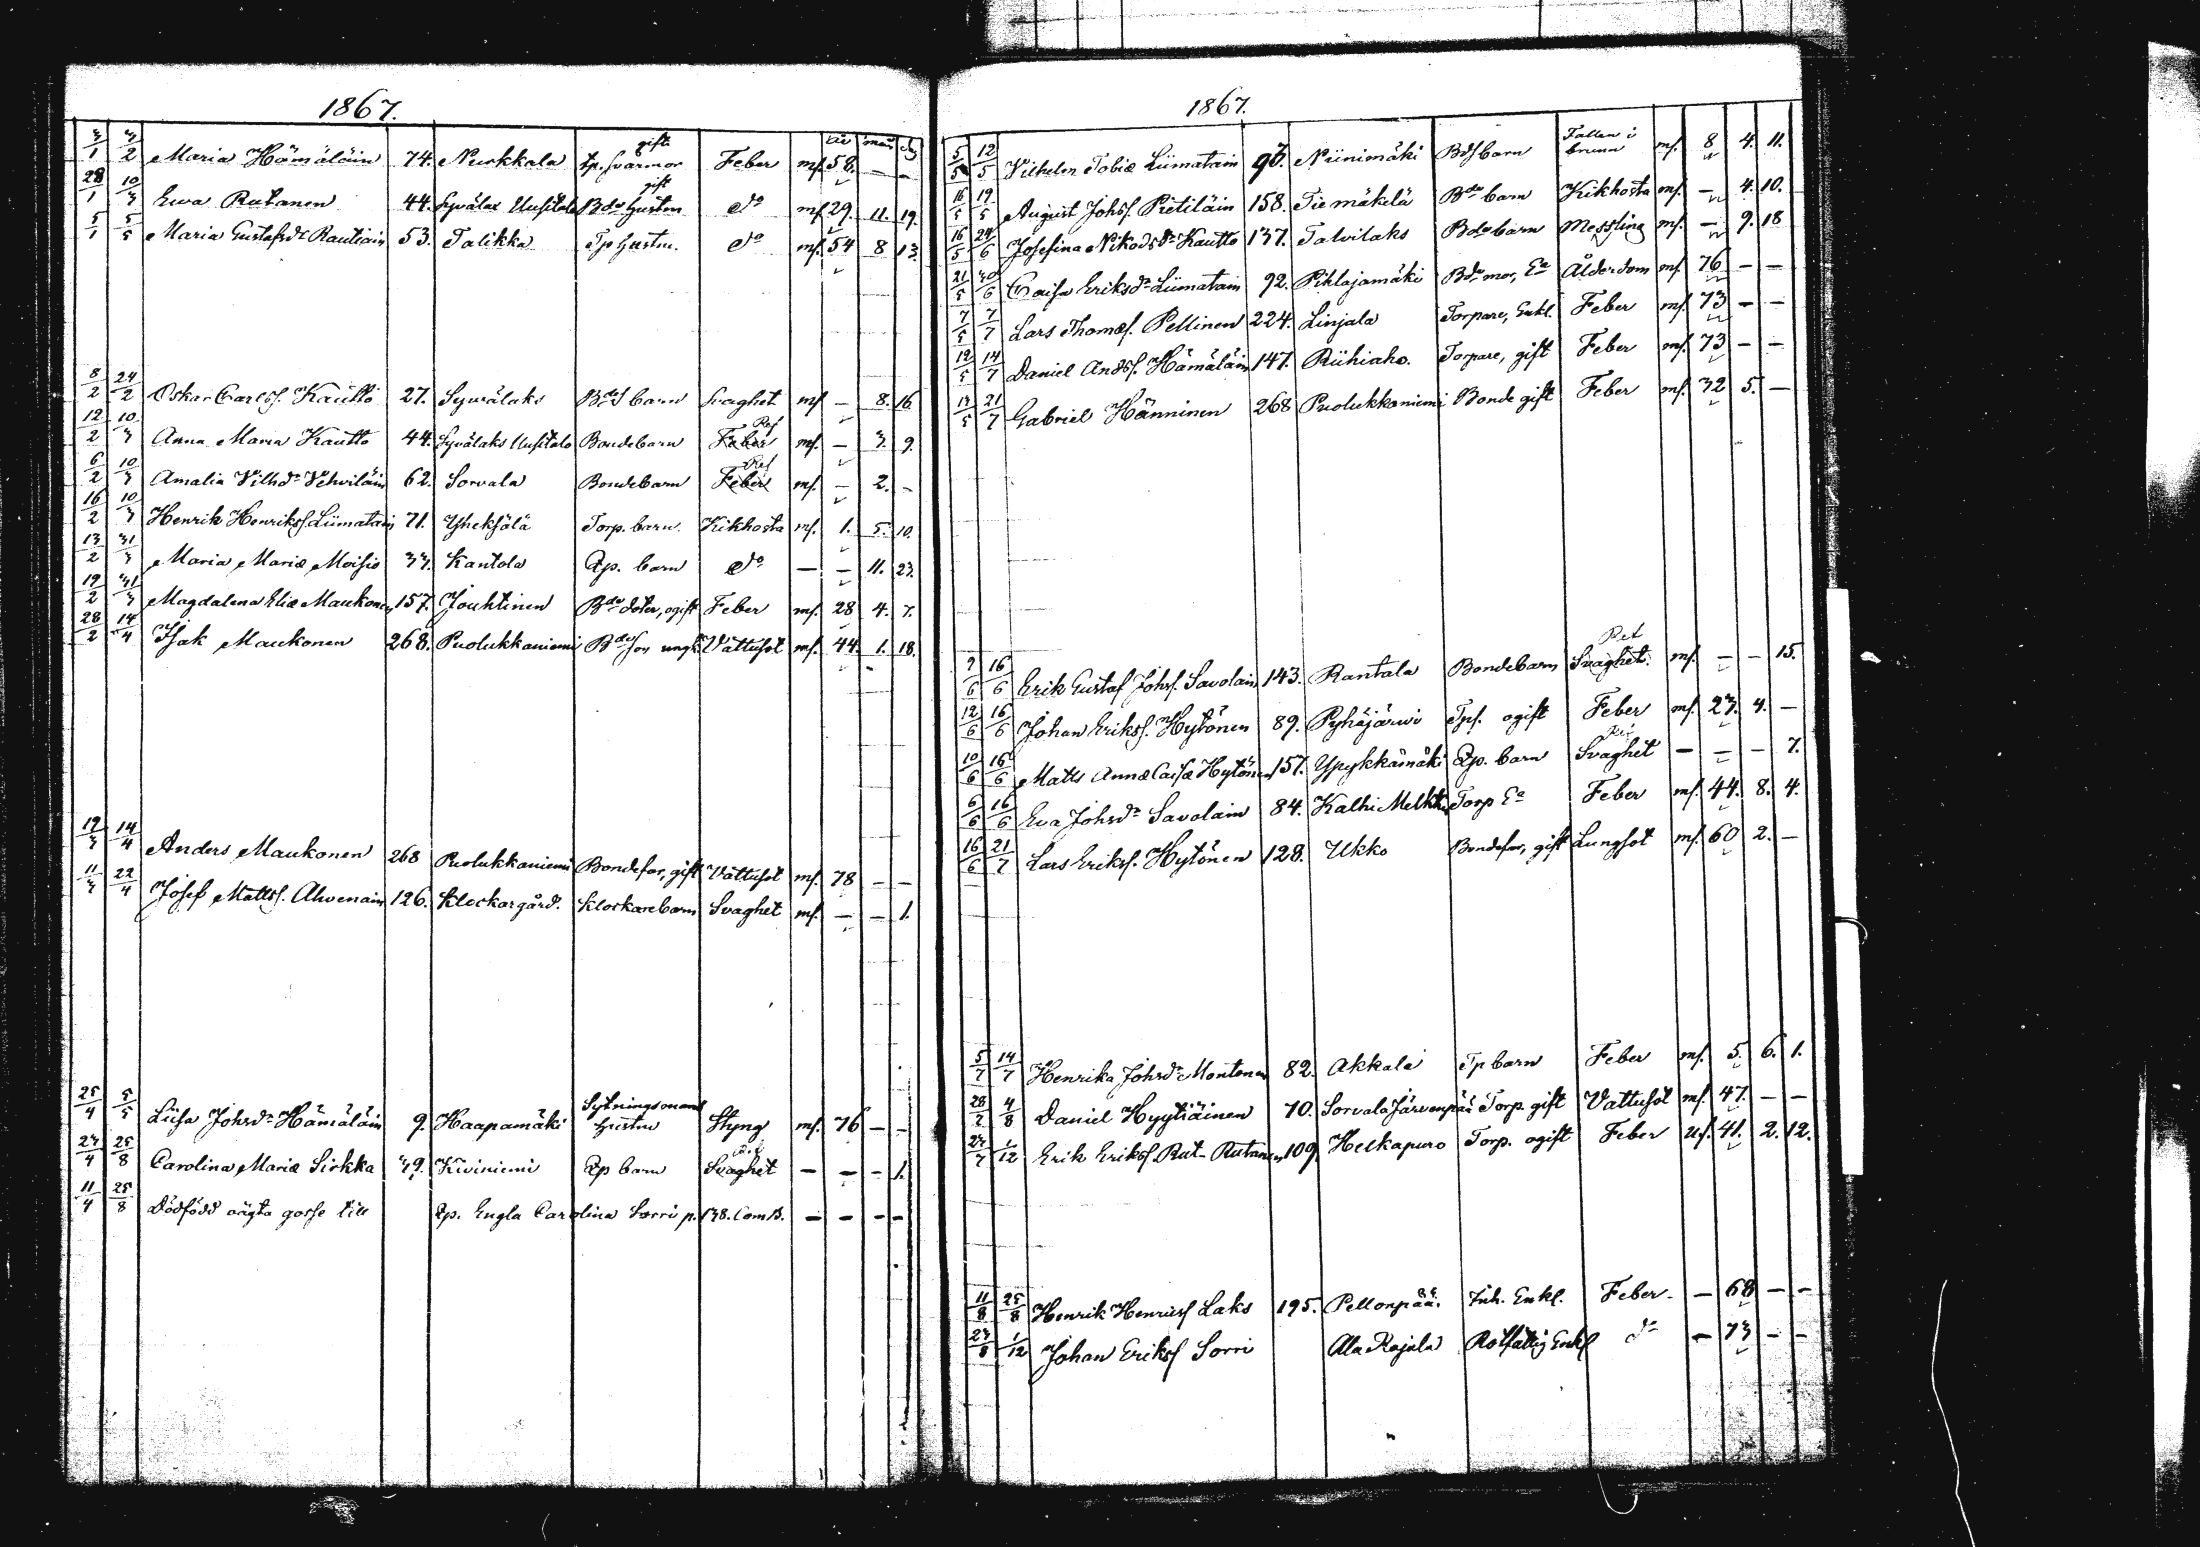 1867.
år mån dg
3/1 3/2 Maria Hämäläin 74. Nurkkala Tp. Svärmor gift Feber mf. 58. — —
28/1 10/3 Ewa Rutanen 44. Syvälax Uusitalo Bds hustru gift do mf. 29. 11. 19.
5/1 5/5 Maria Gustafsdr Rautiain 53. Talikka Tp hustru. do mf. 54 8 13.
8/2 24/2 Oskar Carlsf. Kautto 27. Syvälaks Bds barn Svaghet mf — 8. 16
12/2 10/3 Anna Maria Kautto 44. Syvälaks Uusitalo Bondebarn Feber mf. — 3. 9.
6/2 10/3 Amalia Vilhdr Vehviläin 62. Sorvala Bondebarn Feber mf. — 2. -
16/2 10/3 Henrik Henriksf Liimatain 71. Yheksälä Torp. barn. Kikhosta mf. 1. 5. 10.
13/2 31/3 Maria Mariæ Moisio 33. Kantola Qp. barn do — — 11. 23.
19/2 31/3 Magdalena Eliæ Maukonen 157. Jouhtinen Bds doter, ogift Feber mf. 28 4. 7.
28/2 14/4 Isak Maukonen 268. Puolukkaniemi Bds son ungk. Vattusot mf. 44. 1. 18.
19/3 14/4 Anders Maukonen 268 Puolukkaniemi Bondefar, gift Vattusot mf. 78 — —
11/3 22/4 Josef Mattsf. Ahvenain 126. Klockargård. Klockarebarn Svaghet mf. — — 1.
25/4 5/5 Liisa Johsdr Hämäläin 9. Haapamäki Sytningsmans hustru Styng mf. 76 — —
24/4 25/8 Carolina Mariæ Sirkka 49. Kiviniemi Qp barn Svaghet — — — 1.
11/4 25/8 Dödfödd oägta gosse till Qp. Engla Carolina Sorri p. 138. Com. B. — — — —
1867.
5/5 12/5 Vilhelm Tobiæ Liimatain 96. Niinimäki Bds barn Fallen i brunn mf. 8 4. 11.
16/5 19/5 August Johsf. Pietiläin 158. Tiemäkelä Bds barn Kikhosta mf. — 4. 10.
16/5 24/6 Josefina Nikodsdr Kautto 137. Talvilaks Bds barn Messling mf. — 9. 18
21/5 30/6 Caisa Eriksdr Liimatain 92. Pihlajamäki Bds mor, Ea Ålderdom mf. 76 — —
7/5 7/7 Lars Thomæf. Pellinen 224. Linjala Torpare, Enkl. Feber mf. 73 — —
12/5 14/7 Daniel Andsf. Hämäläin 147. Riihiaho. Torpare, gift Feber mf. 73 — —
13/5 21/7 Gabriel Hänninen 268 Puolukkaniemi Bonde gift Feber mf. 32 5. —
9/6 16/6 Erik Gustaf Johsf. Savolain 143. Rantala Bondebarn Svaghet. mf. — — 15.
12/6 16/6 Johan Eriksf. Hytönen 89. Pyhäjärvi Tpf. ogift Feber mf. 23. 4. —
10/6 16/6 Matts Annæ Caisæ Hytönen 157. Ypykkämäki Qp. barn Svaghet — — — 7.
6/6 16/6 Eva Johsdr Savolain 84. Kalhi Torp Ea Feber mf. 44. 8. 4.
16/6 21/7 Lars Eriksf. Hytönen 128. Ukko Bondefar, gift Lungsot mf. 60 2. —
5/7 14/7 Henrika Johsdr Montonen 82. Akkala Tp barn Feber mf. 5. 6. 1.
28/2 4/8 Daniel Hyytiäinen 70. Sorvala Järvenpää Torp. gift Vattusot mf. 47. — —
24/7 1/12 Erik Eriksf. Rut- Rutanen 109. Helkapuro Torp. ogift Feber uf. 41. 2. 12.
11/8 25/8 Henrik Henriksf Laks 195. Pellonpää. Inh. Enkl. Feber. — 68 — —
23/8 1/12 Johan Eriksf Sorri Ala Kajala Rotfattig Enkl do — 73 — —